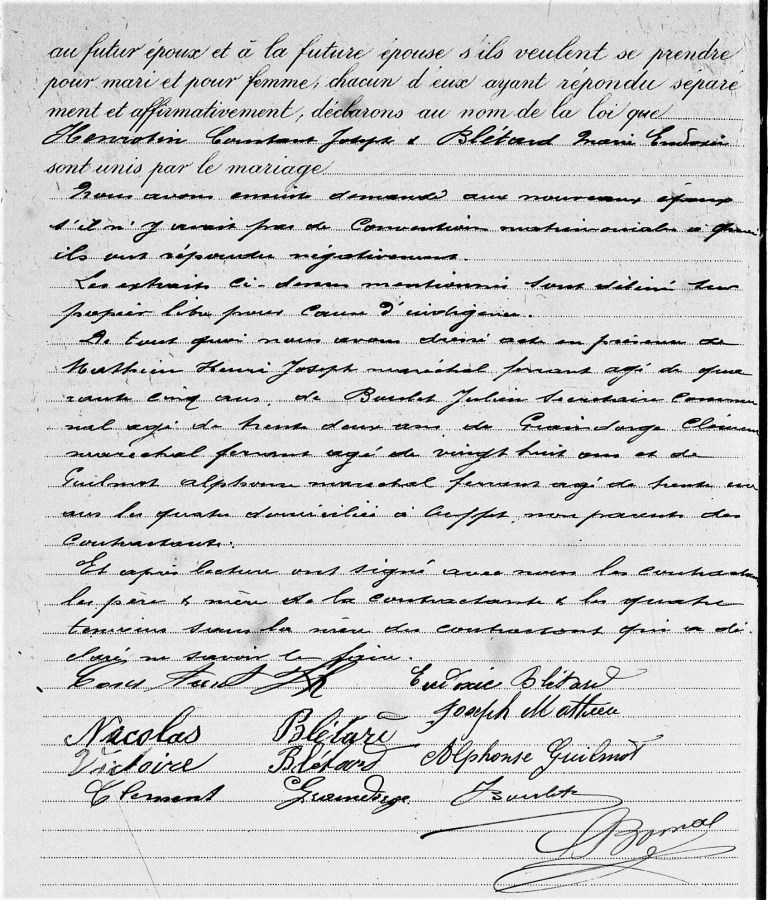 au futur époux et à la future épouse s'ils veulent se prendre
pour mari et pour femme; chacun d'eux ayant répondu séparé
ment et affirmativement, déclarons au nom de la loi que
Henrotin Constant Joseph & Blétard Marie Eudoxie
sont unis par le mariage
Nous avons ensuite demandé aux nouveaux époux
s'il n'y avait pas de Convention matrimoniale à quoi
ils ont répondu négativement.
Les extraits ci-dessus mentionnés sont délivré sur
papier libre pour cause d'indigence.
De tout quoi nous avons dressé acte en présence de
Mathieu Henri Joseph maréchal ferrant agé de qua
rante cinq ans, de Boulet Julien Secrétaire commu
nal agé de trente deux ans de Graindorge Clément
maréchal ferrant agé de vingt huit ans et de
Guilmot alphonse maréchal ferrant agé de trente un
ans les quatre domiciliés à non parents des
contractants.
Et après lecture ont signé avec nous les contractants
les père & mère de la contractante & les quatre
témoins sauf la mère du contractant qui a dé
claré ne savoir le faire.
Eudoxie Blétard
Joseph Mathieu
Nicolas Blétard
Victoire Blétard Alphonse Guilmot
Clement Graindorge Boulet